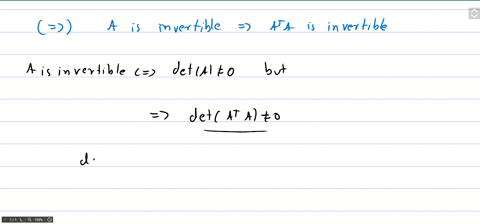 (=>) A is invertible => AᵀA is invertible
A is invertible <=> det(A) ≠ 0 but
=> det(AᵀA) ≠ 0
d.